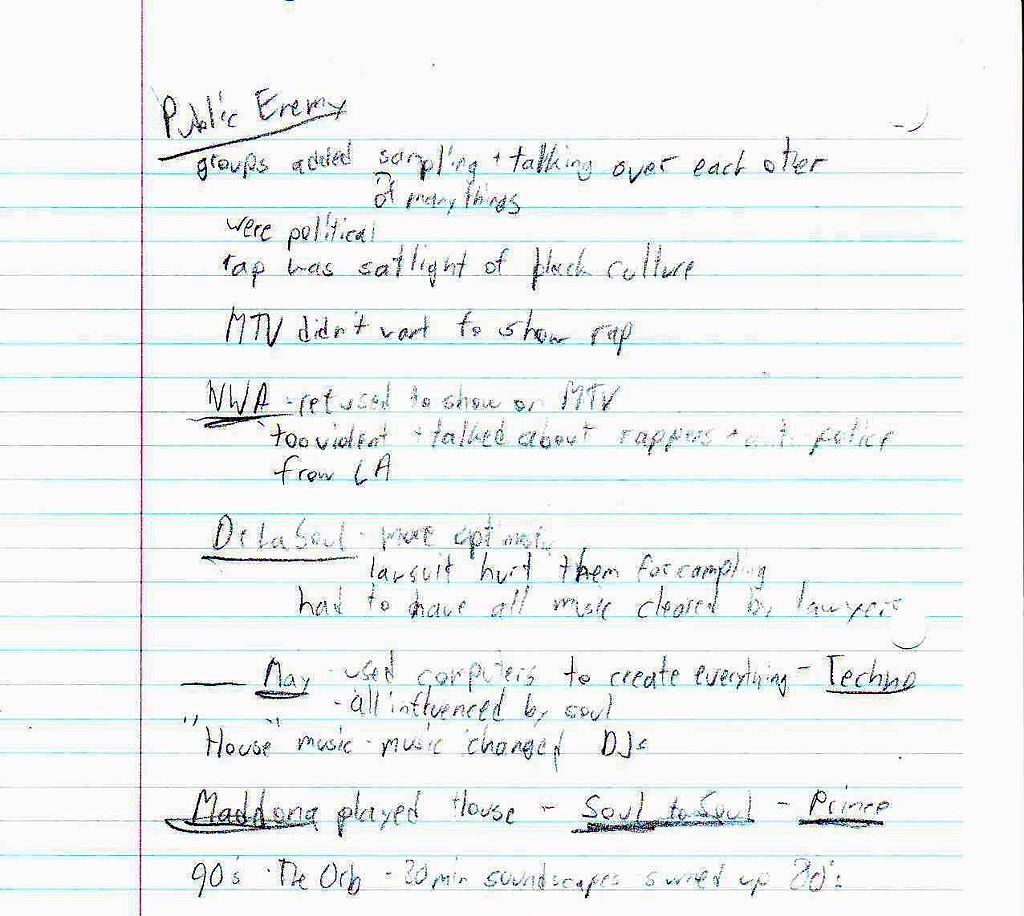 Public Enemy
groups added sampling + talking over each other
of many things
were political
rap was satlight of black culture
MTV didn't want to show rap
NWA - refused to show on MTV
too violent + talked about rappers + anti police
from LA
De La Soul - more optimistic
lawsuit hurt them for sampling
had to have all music cleared by lawyers
____ May - used computers to create everything - Techno
- all influenced by soul
"House" music - music changed DJs
Maddona played House - Soul to Soul - Prince
90's - The Orb - 20 min soundscapes summed up 80's